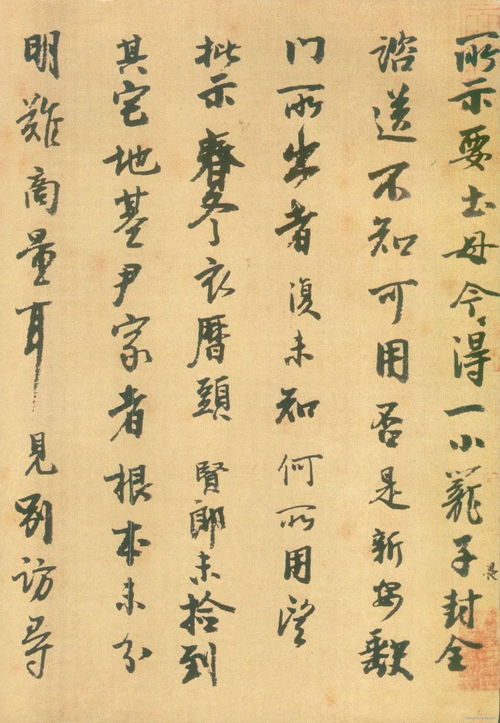 所示要土母今得一小籠子封全
諮送不知可用否是新安缺
門所出者復未知何所用望
批示春冬衣曆頭賢郎未撿到
其宅地基尹家者根本未分
明難商量耳見別訪尋